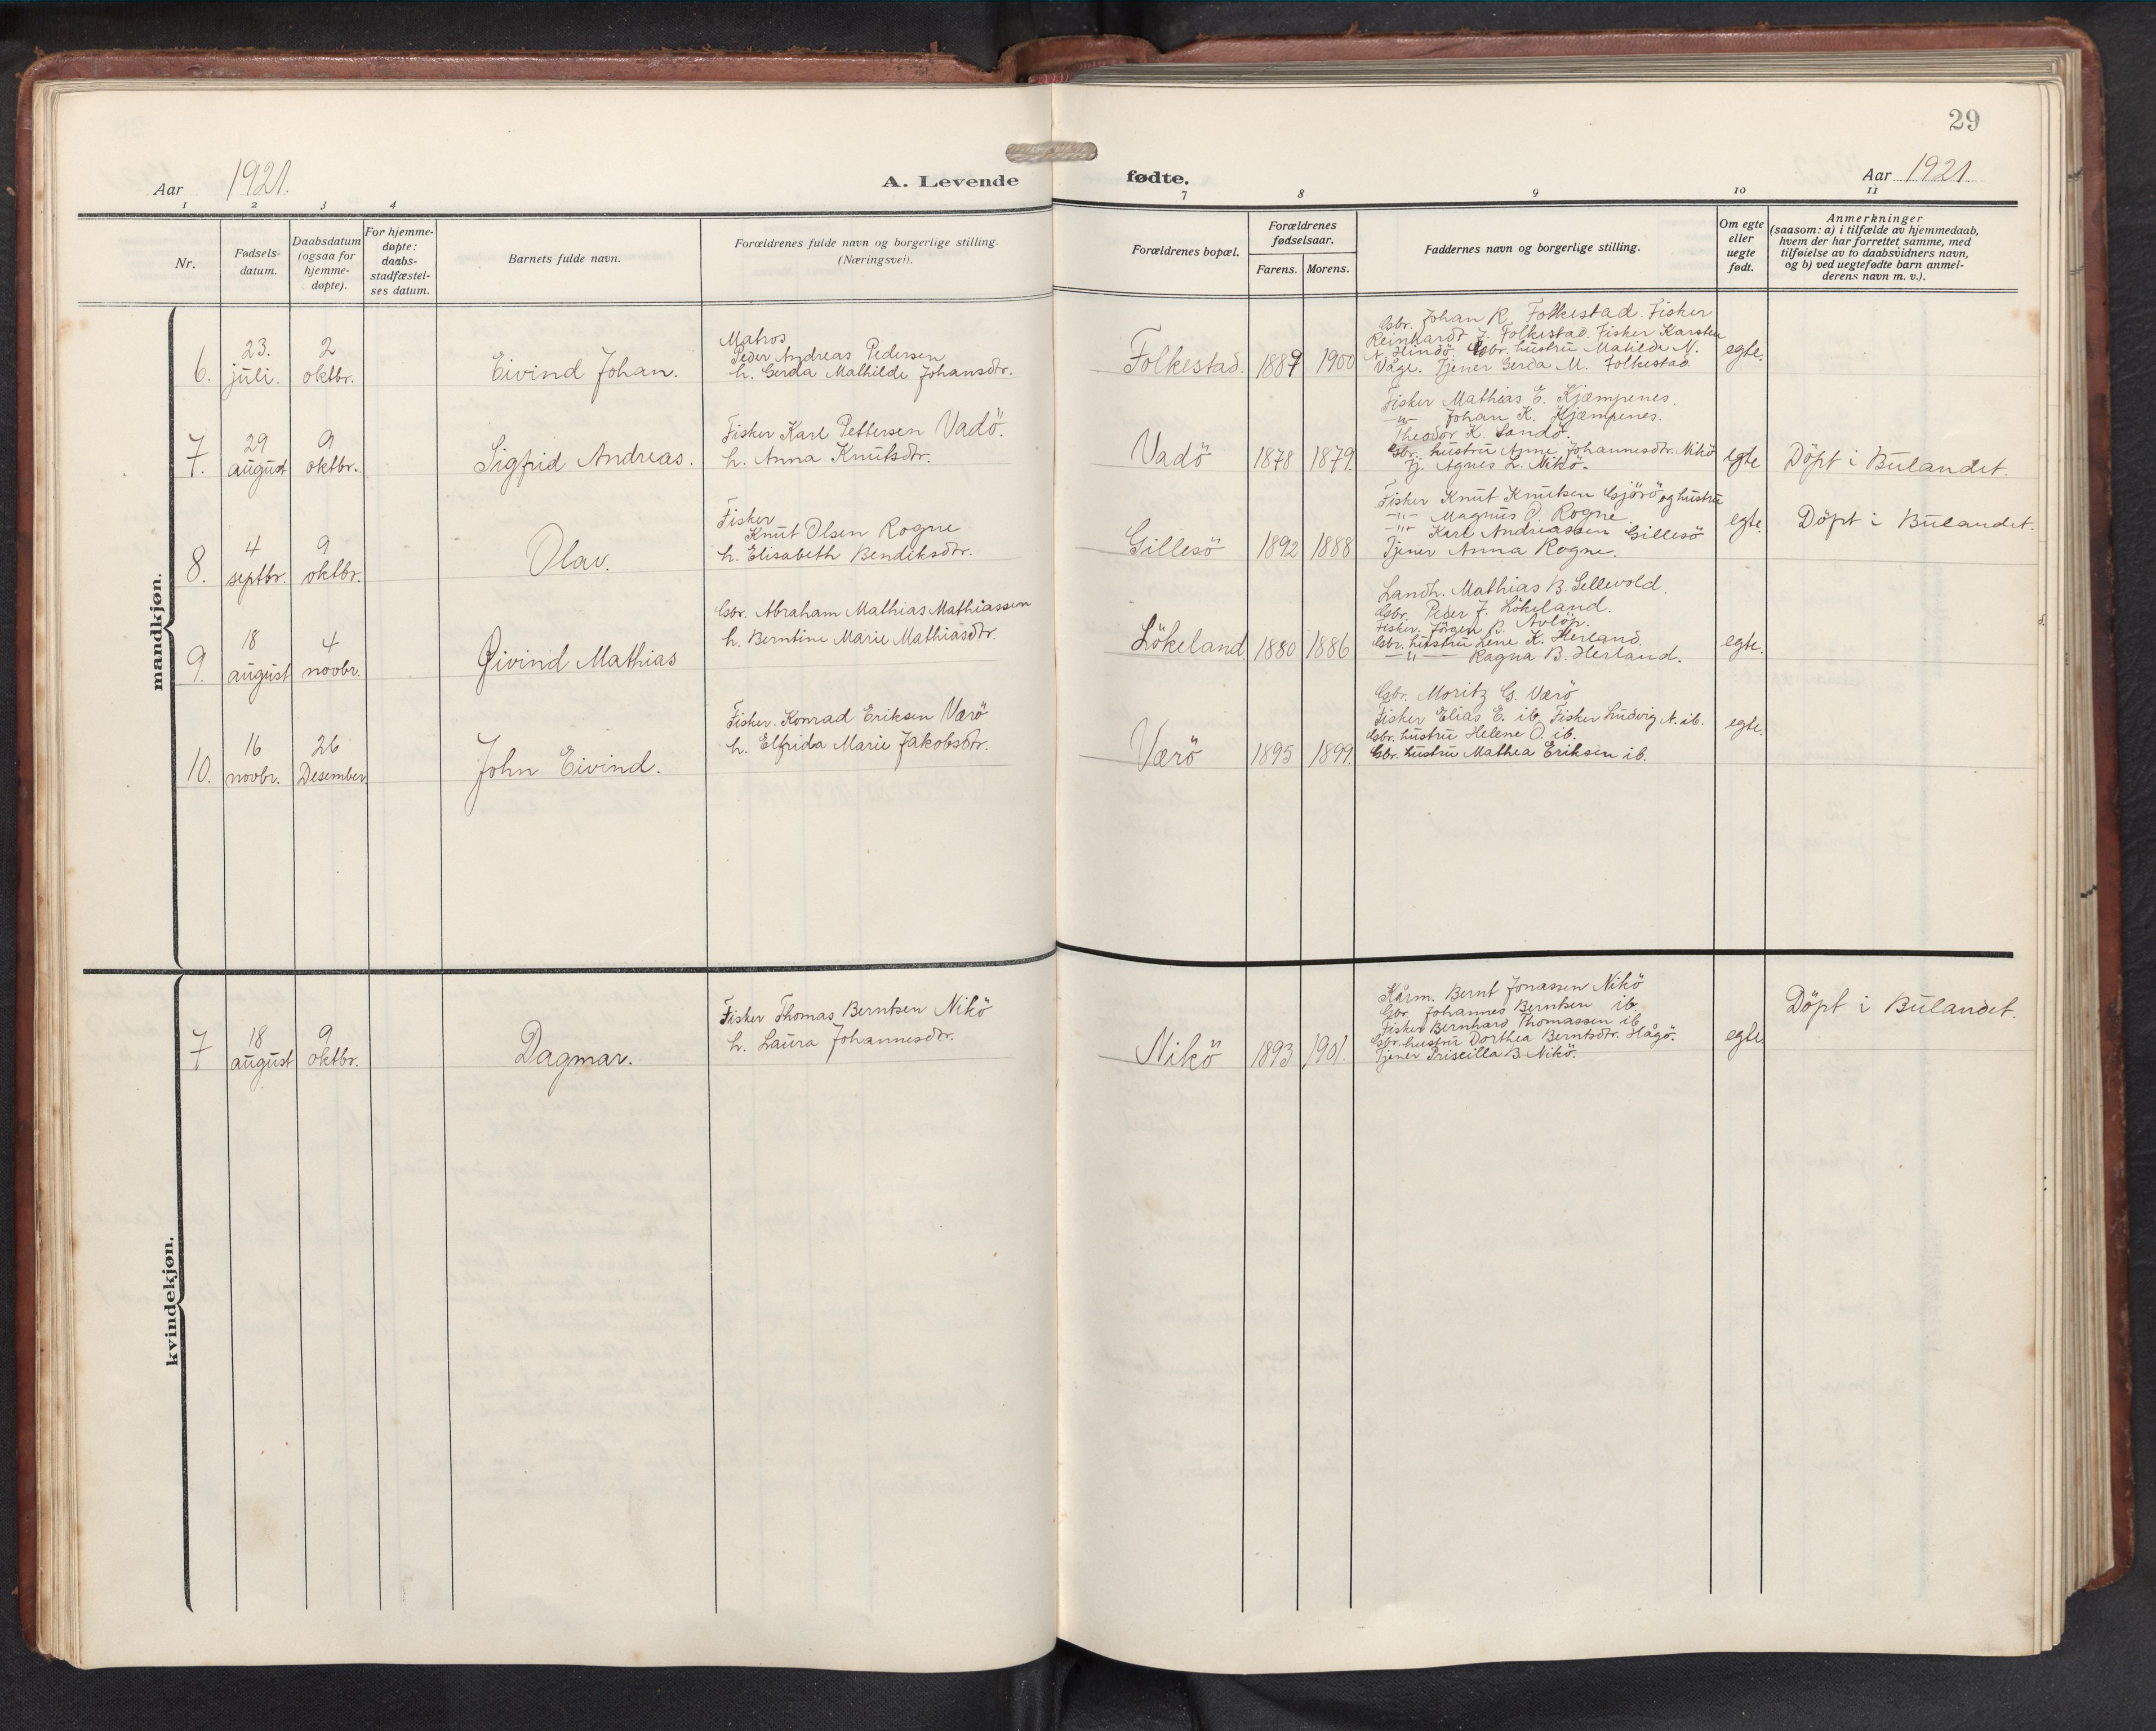 29
Aar 1921.
A. Levende fødte.
Aar 1921.
1 2 3 4 7 8 9 10 11
Nr.
Fødsels-
datum.
Daabsdatum
(ogsaa for
hjemme-
døpte).
For hjemme-
døpte:
daabs-
stadfæstel-
ses datum.
Barnets fulde navn.
Forældrenes fulde navn og borgerlige stilling.
(Næringsvei).
Forældrenes bopæl.
Forældrenes
fødselsaar.
Farens. Morens.
Faddernes navn og borgerlige stilling.
Om egte
eller
uegte
født.
Anmerkninger
(saasom: a) i tilfælde av hjemmedaab,
hvem der har forrettet samme, med
tilføielse av to daabsvidners navn,
og b) ved uegtefødte barn anmel-
derens navn m. v.).
mandkjøn.
6.
23.
juli.
2
oktbr.
Eivind Johan.
Matros
Peder Andreas Pedersen
h. Gerda Mathilde Johansdtr.
Folkestad. 1889 1900
Gbr. Johan R. Folkestad. Fisker
Reinhardt J. Folkestad. Fisker Karsten
A. Hindö. Gbr. hustru Matilde N.
Våge. Tjener Gerda M. Folkestad.
egte.
7.
29
august
9
oktbr.
Sigfrid Andreas.
Fisker Karl Pettersen Vadö.
h. Anna Knutsdtr.
Vadö 1878 1879.
Fisker Mathias E. Kjæmpenes.
-"- Johan K. Kjæmpenes.
Theodor K. Sandö.
Gbr. hustru Anne Johannesdtr. Nikö
Tj. Agnes L. Nikö.
egte
Döpt i Bulandet.
8.
4
septbr.
9
oktbr.
Olav.
Fisker
Knut Olsen Rogne
h. Elisabeth Bendiksdtr.
Gillesö 1892 1888
Fisker Knut Knutsen Gjörö og hustru
-"- Magnus O. Rogne
-"- Karl Andreassen Gillesö
Tjener Anna Rogne.
egte.
Döpt i Bulandet.
9.
18
august
4
novbr.
Øivind Mathias
Gbr. Abraham Mathias Mathiassen
h. Berntine Marie Mathiasdtr.
Lökeland 1880 1886
Landh. Mathias B. Sellevold.
Gbr. Peder J. Lökeland.
Fisker Jörgen B. Avlöp.
Gbr. hustru Lene K. Herland.
-"- Ragna B. Herland.
egte.
10.
16
novbr.
26
Desember
John Eivind.
Fisker. Konrad Eriksen Værö
h. Elfrida Marie Jakobsdtr.
Værö 1895 1899.
Gbr. Moritz G. Værö
Fisker Elias E. ib. Fisker Ludvig A. ib.
Gbr. hustru Helene O. ib.
Gbr. hustru Mathea Eriksen ib.
egte.
kvindekjøn.
7
18
august
9
oktbr.
Dagmar.
Fisker Thomas Berntsen Nikö
h. Laura Johannesdtr.
Nikö 1893 1901.
Kårm. Bernt Jonassen Nikö
Gbr. Johannes Berntsen ib.
Fisker Bernhard Thomassen ib
Gbr. hustru Dorthea Berntsdtr. Hågö.
Tjener Priscilla B. Nikö.
egte
Döpt i Bulandet.